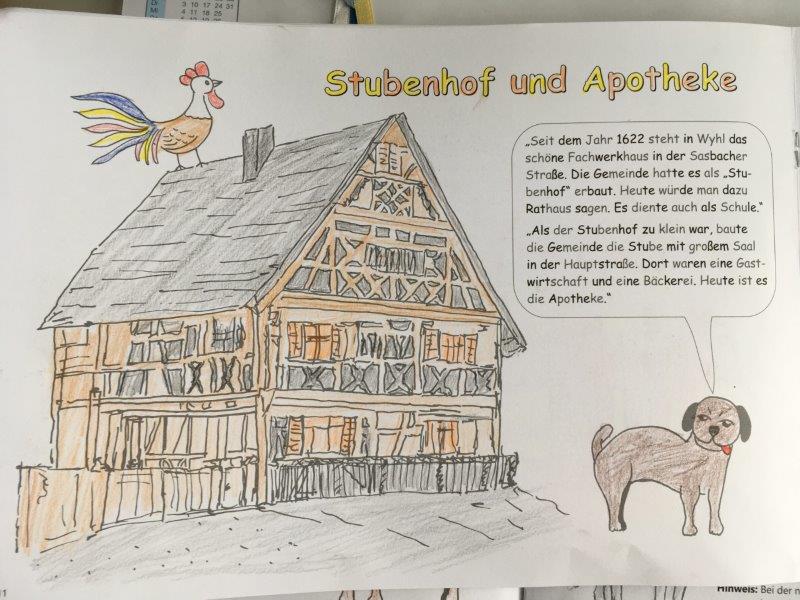 Di 3 10 17 24 31
Mi 4 11 18 25
Do 5 12 19 26
Stubenhof und Apotheke
„Seit dem Jahr 1622 steht in Wyhl das
schöne Fachwerkhaus in der Sasbacher
Straße. Die Gemeinde hatte es als „Stu-
benhof“ erbaut. Heute würde man dazu
Rathaus sagen. Es diente auch als Schule.“
„Als der Stubenhof zu klein war, baute
die Gemeinde die Stube mit großem Saal
in der Hauptstraße. Dort waren eine Gast-
wirtschaft und eine Bäckerei. Heute ist es
die Apotheke.“
Hinweis: Bei der